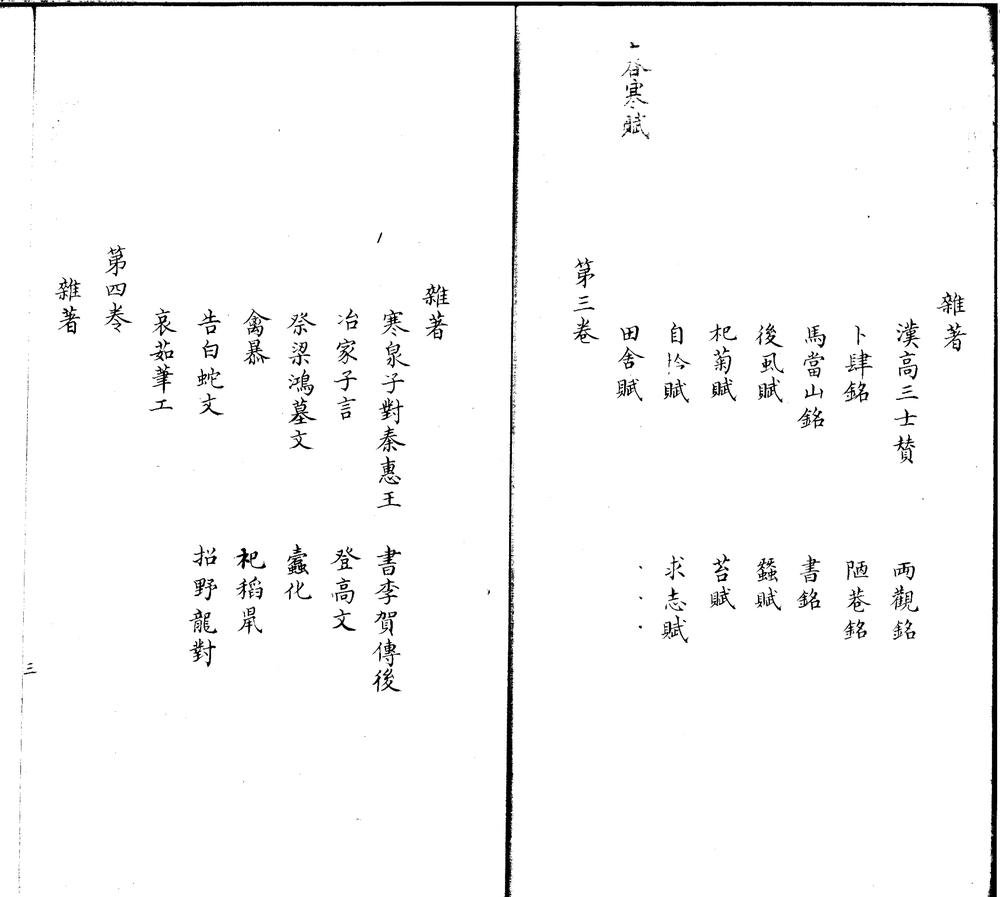 雜著
漢高三士賛 兩觀銘
卜肆銘 陋巷銘
馬當山銘 書銘
後虱賦 蠶賦
杞菊賦 苔賦
自怜賦 求志賦
田舍賦
春寒賦
第三卷
雜著
寒泉子對秦惠王 書李賀傳後
冶家子言 登高文
祭梁鴻墓文 蠹化
禽暴 祀稻鼠
告白蛇文 招野龍對
哀茹筆工
第四卷
雜著
三